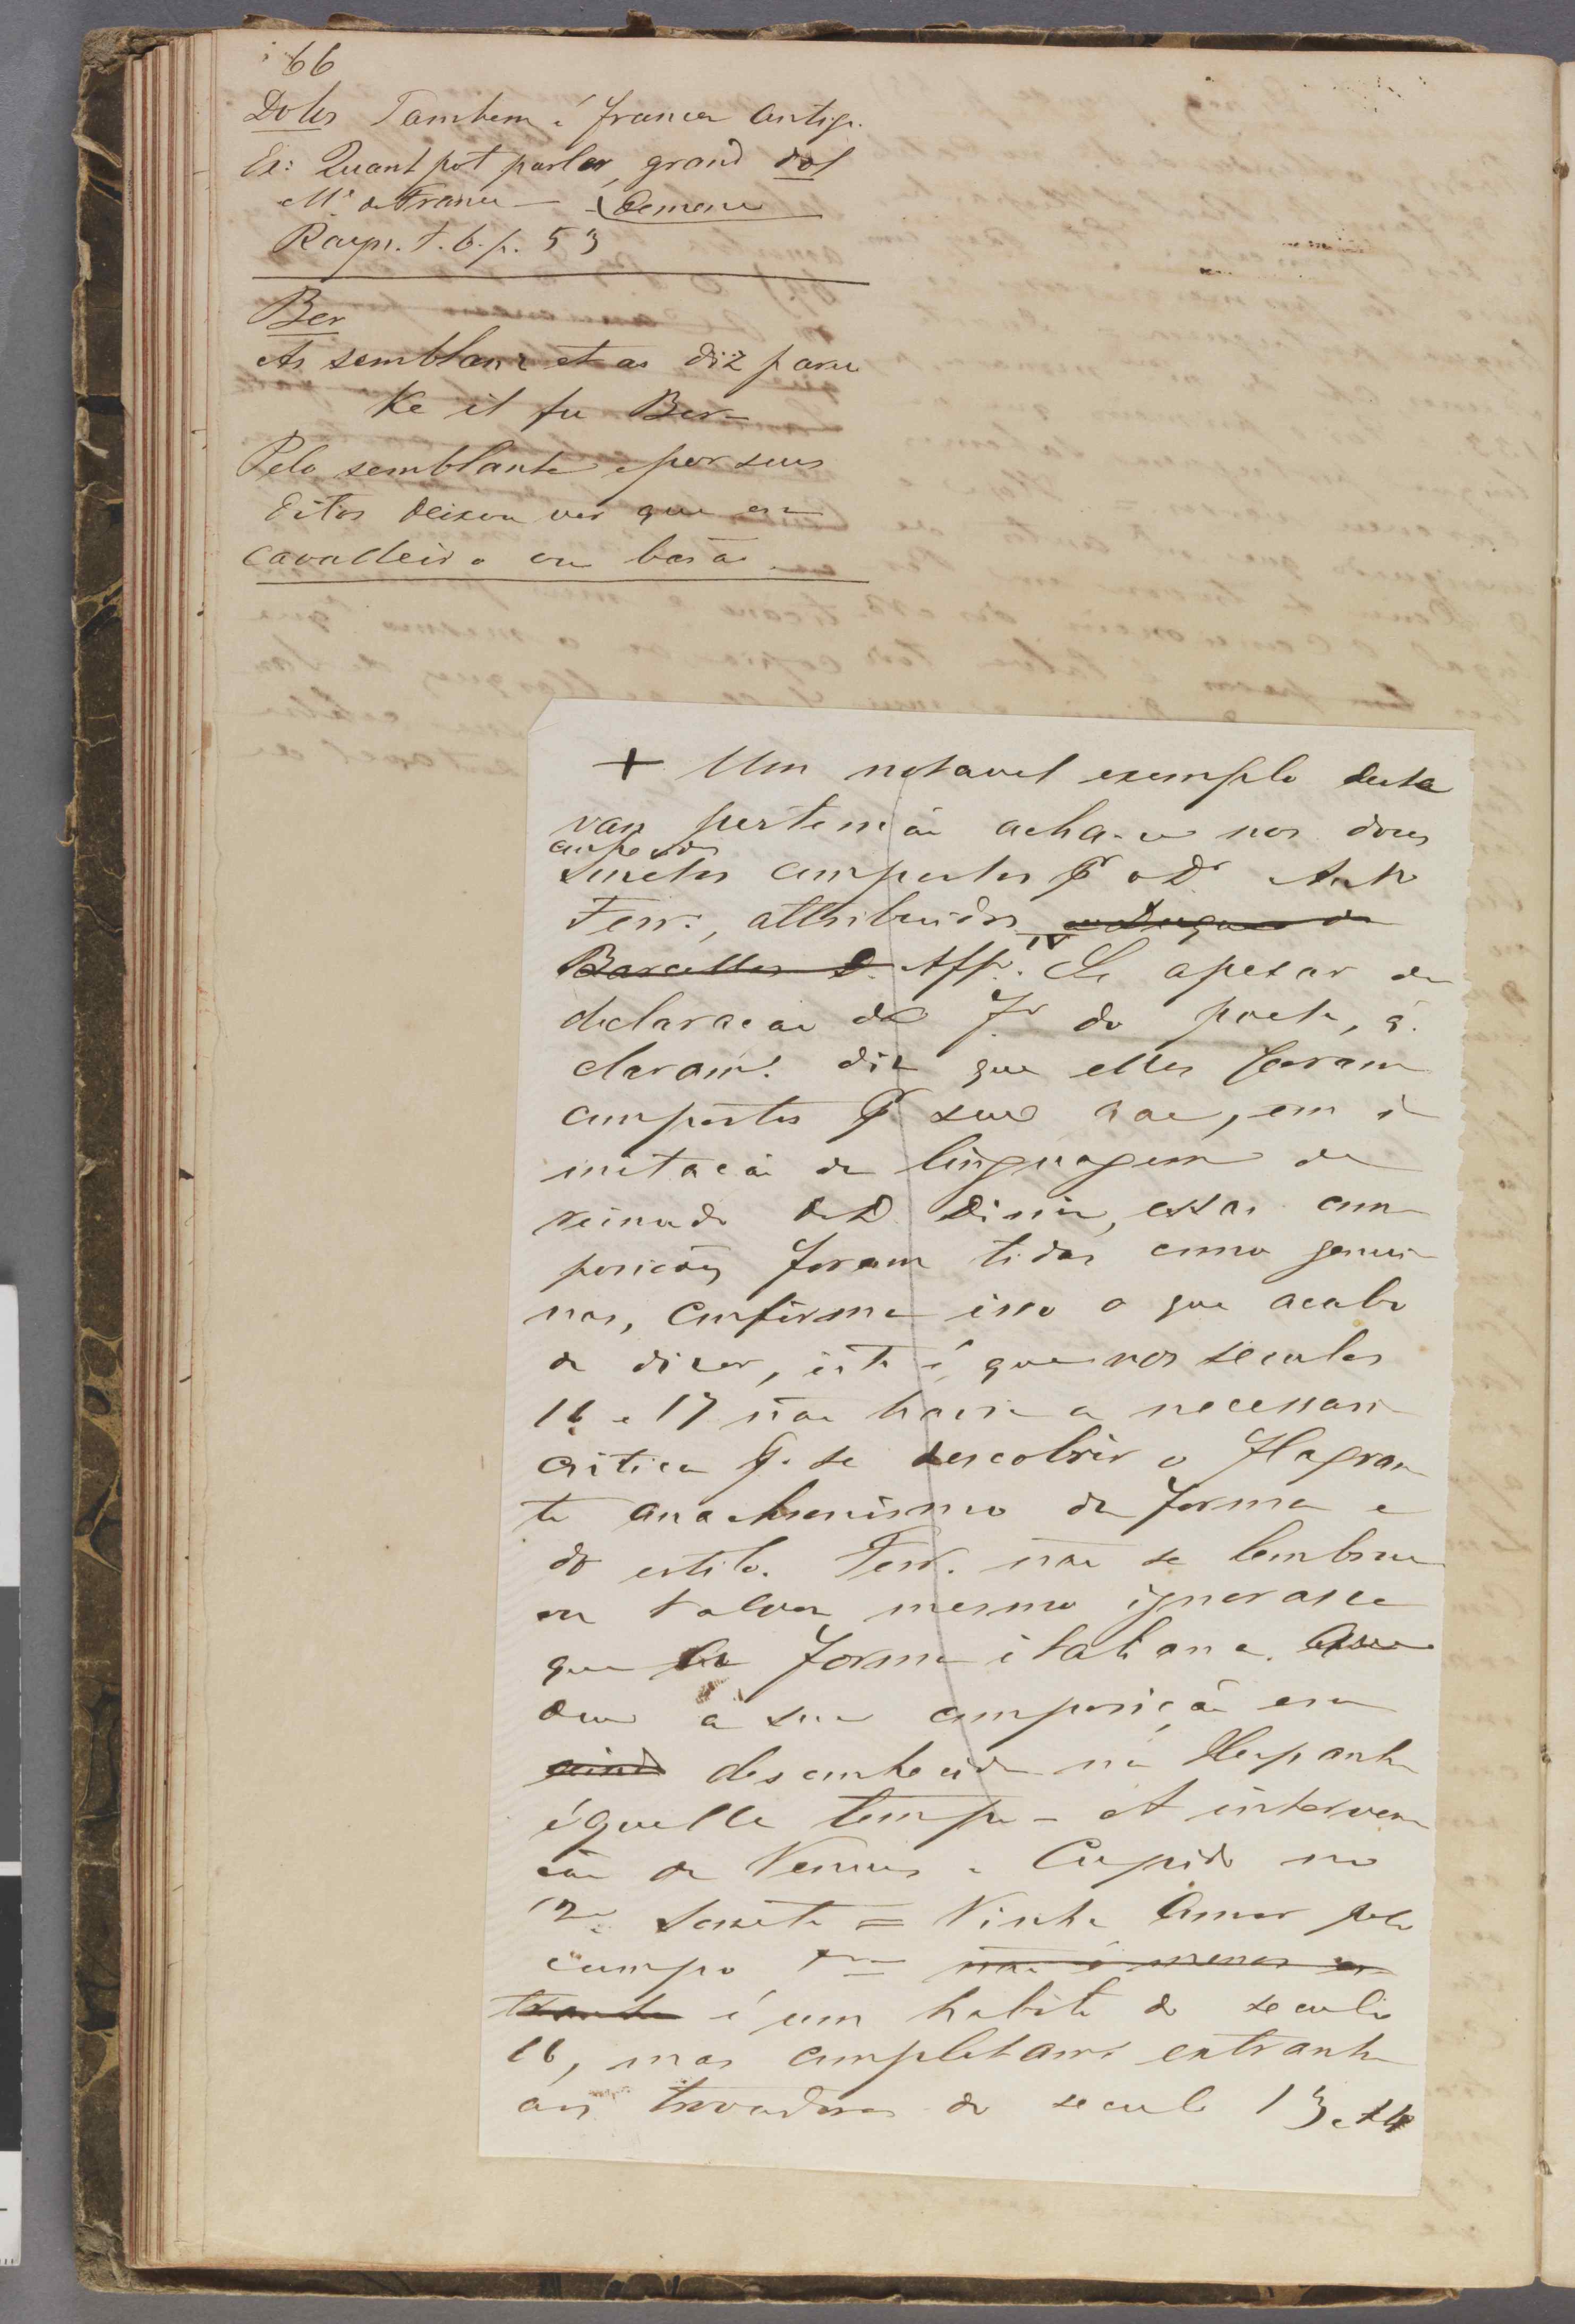 66
Doles Tambem é francez antigo.
Ex: Quant pot parler, grand dol
Mie de France — demene
Rayn. t. 6. p. 53
Ber
As semblanz et as diz paru
Ke il fu Ber —
Pelo semblante e por seus
ditos deixou ver que era
cavalleiro ou barão.
+ Um notavel exemplo desta
van pertenção acha-se nos dous
sonetos compostos pr o Dr Anto
Ferr:, attribuidos ao Duque de
Barcellos D. Affo. IV Se apesar da
declaracao do fo do poeta, q.
claramte diz que elles foram
compostos pr seu pae, em i
mitacão da linguagem do
reinado de D. Diniz, essas com
posicões foram tidas como genui
nas, confirma isso o que acabo
de dizer, isto é, que nos seculos
16 e 17 não havia a necessaria
critica pa se descobrir o flagran
te anachronismo da forma e
do estilo. Ferr. não se lembrou
ou talvez mesmo ignorasse
que a forma italiana que
deu á sua composicão era
ainda desconhecida na Hespanha
áquelle tempo — A interven
cão de Venus e Cupido no
2o soneto = Vinha Amor pelo
campo = não é menos ex
tranha é um habito do seculo
16, mas completamte extranho
aos trovadores do seculo 13 e 14